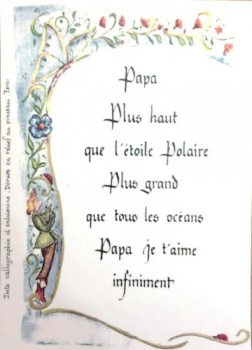 Papa
Plus haut
que l'étoile Polaire
Plus grand
que tous les océans
Papa je t'aime
infiniment
Texte calligraphié et enluminé. Dorure en relief au pinceau